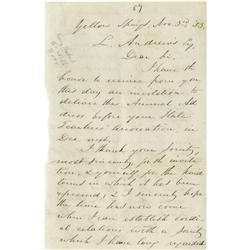 57
Yellow Springs, Nov. 3rd, 53.
L. Andrews Esq
Dear Sir,
I have the
honor to receive from you
this day an invitation to
deliver the Annual Ad
dress before your State
Teachers' Association, in
Dec. next.
I thank your Society,
most sincerely for the invita
tion, & yourself for the kind
terms in which it has been
expressed; & I sincerely hope
the time has now come
when I can establish cordi
al relations with a Society
which I have long regarded